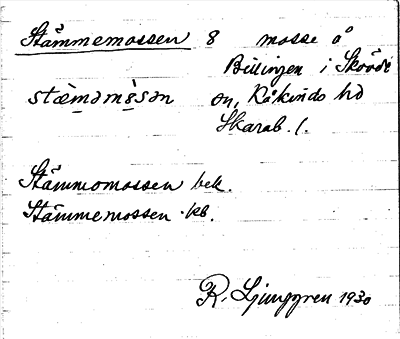 Stämmemossen 8 mosse å
Billingen i Skövde
stæ̀məms̀ən on, Kåkinds hd
Skarab. l.
Stämmomossen bek.
Stämmemossen kb.
R. Ljunggren 1930